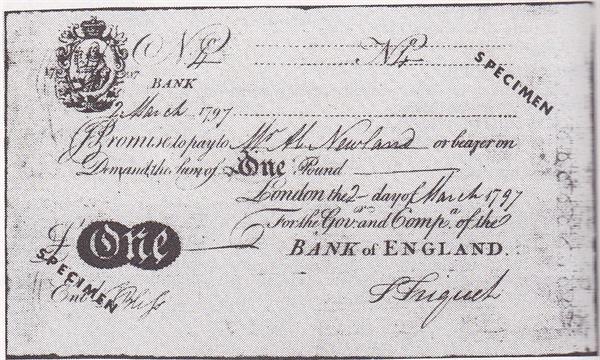 No. 4 No. 4
SPECIMEN
17 97
BANK
2 March 1797
I Promise to pay to Mr. Ab. Newland or bearer on
Demand, the sum of One Pound
London the 2 day of March 1797
For the Govr. and Compa. of the
£ One
BANK of ENGLAND.
SPECIMEN
Entd.